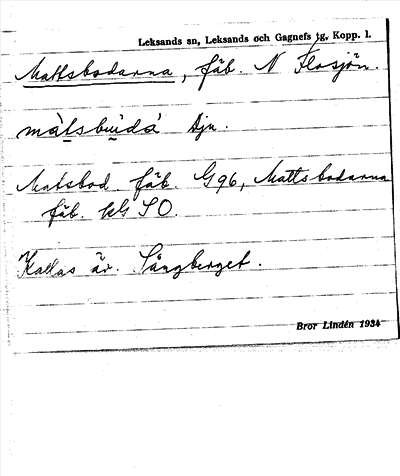 Leksands sn, Leksands och Gagnefs tg, Kopp. l.
Mattsbodarna, fäb. N Flosjön.
màtsbùda Dju.
Matsbod fäb. G 96, Mattsbodarna
fäb. kbl SO.
Kallas äv. Långberget.
Bror Lindén 1934